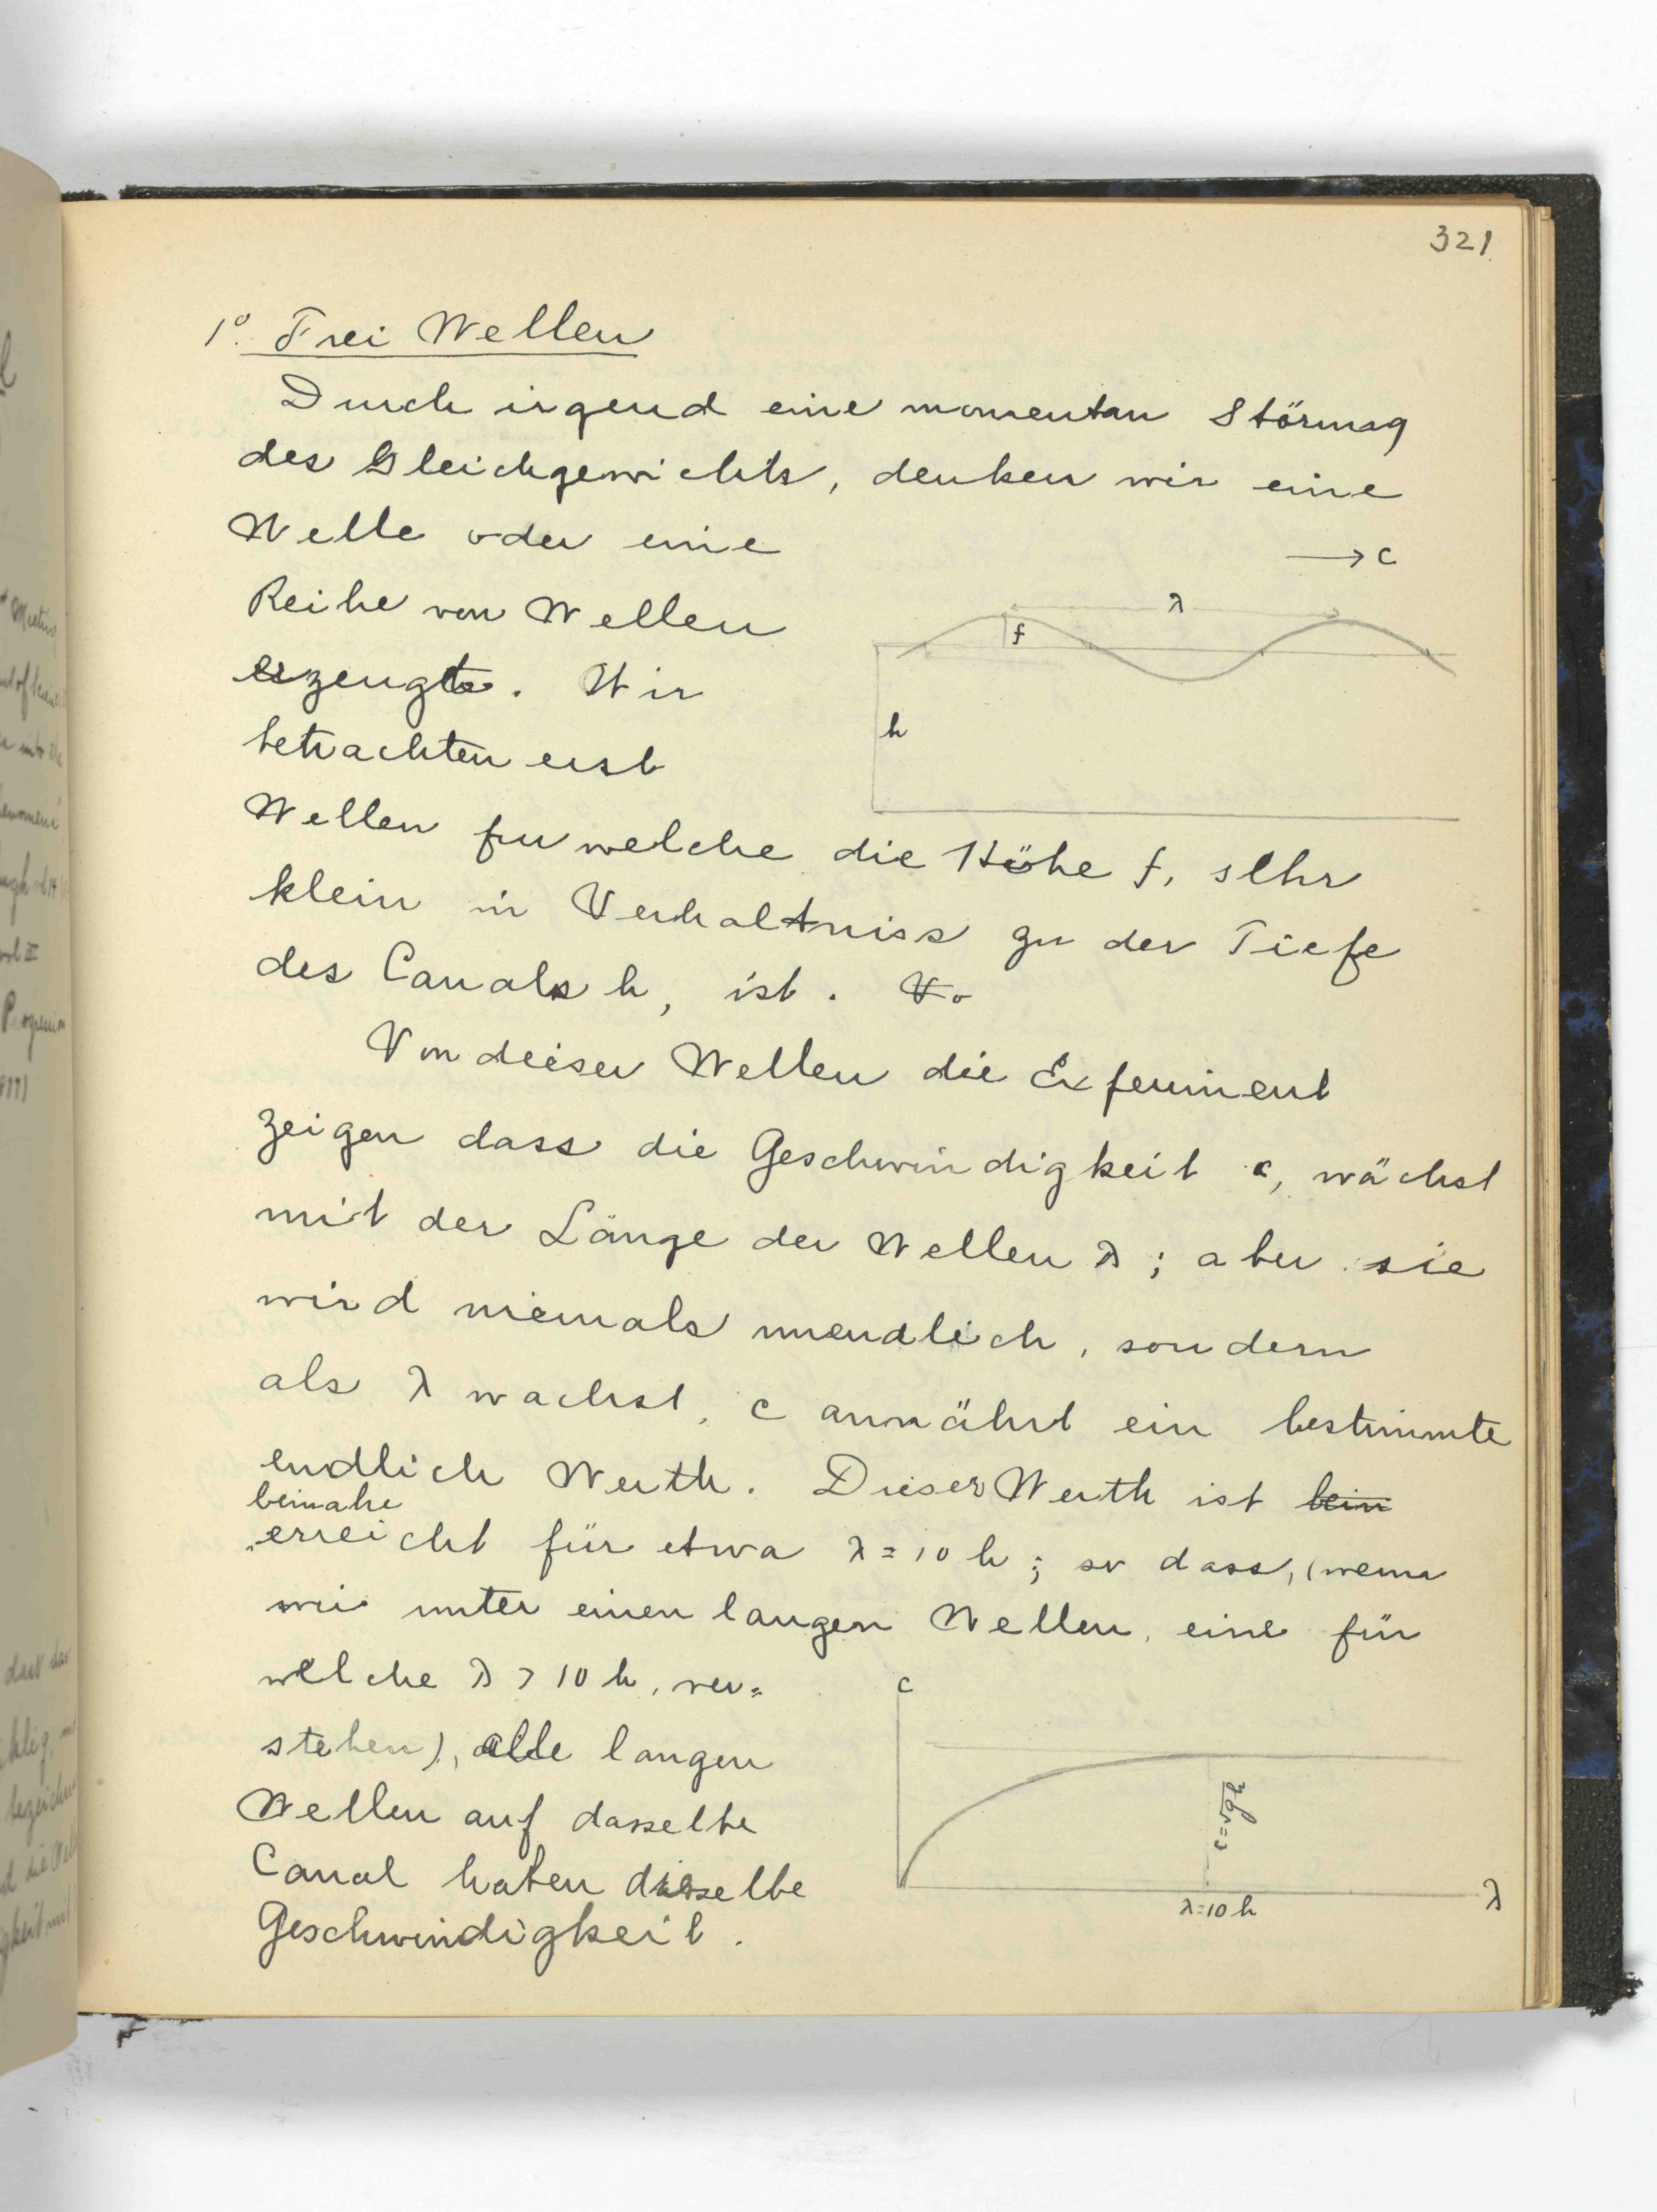 321
1º. Frei Wellen
Durch irgend eine momentan Störung
des Gleichgewichts, denken wir eine
Welle oder eine
→ c
Reihe von Wellen
λ
f
erzeugte. Wir
h
betrachten erst
Wellen fur welche die Höhe f, sehr
klein in Verhaltniss zu der Tiefe
des Canals h, ist. Vo
Von deiser Wellen die Experiment
zeigen dass die Geschwindigkeit c, wächst
mit der Länge der Wellen λ; aber sie
wird niemals unendlich, sondern
als λ wachst, c annährt ein bestimmte
endlich Werth. Dieser Werth ist bein
beinahe
erreicht für etwa λ = 10 h; so dass, (wenn
wir unter einen langen Wellen, eine für
welche λ > 10 h, ver=
stehen), alle langen
Wellen auf dasselbe
Canal haben dieselbe
Geschwindigkeit.
c
c=√gh
λ=10 h
λ